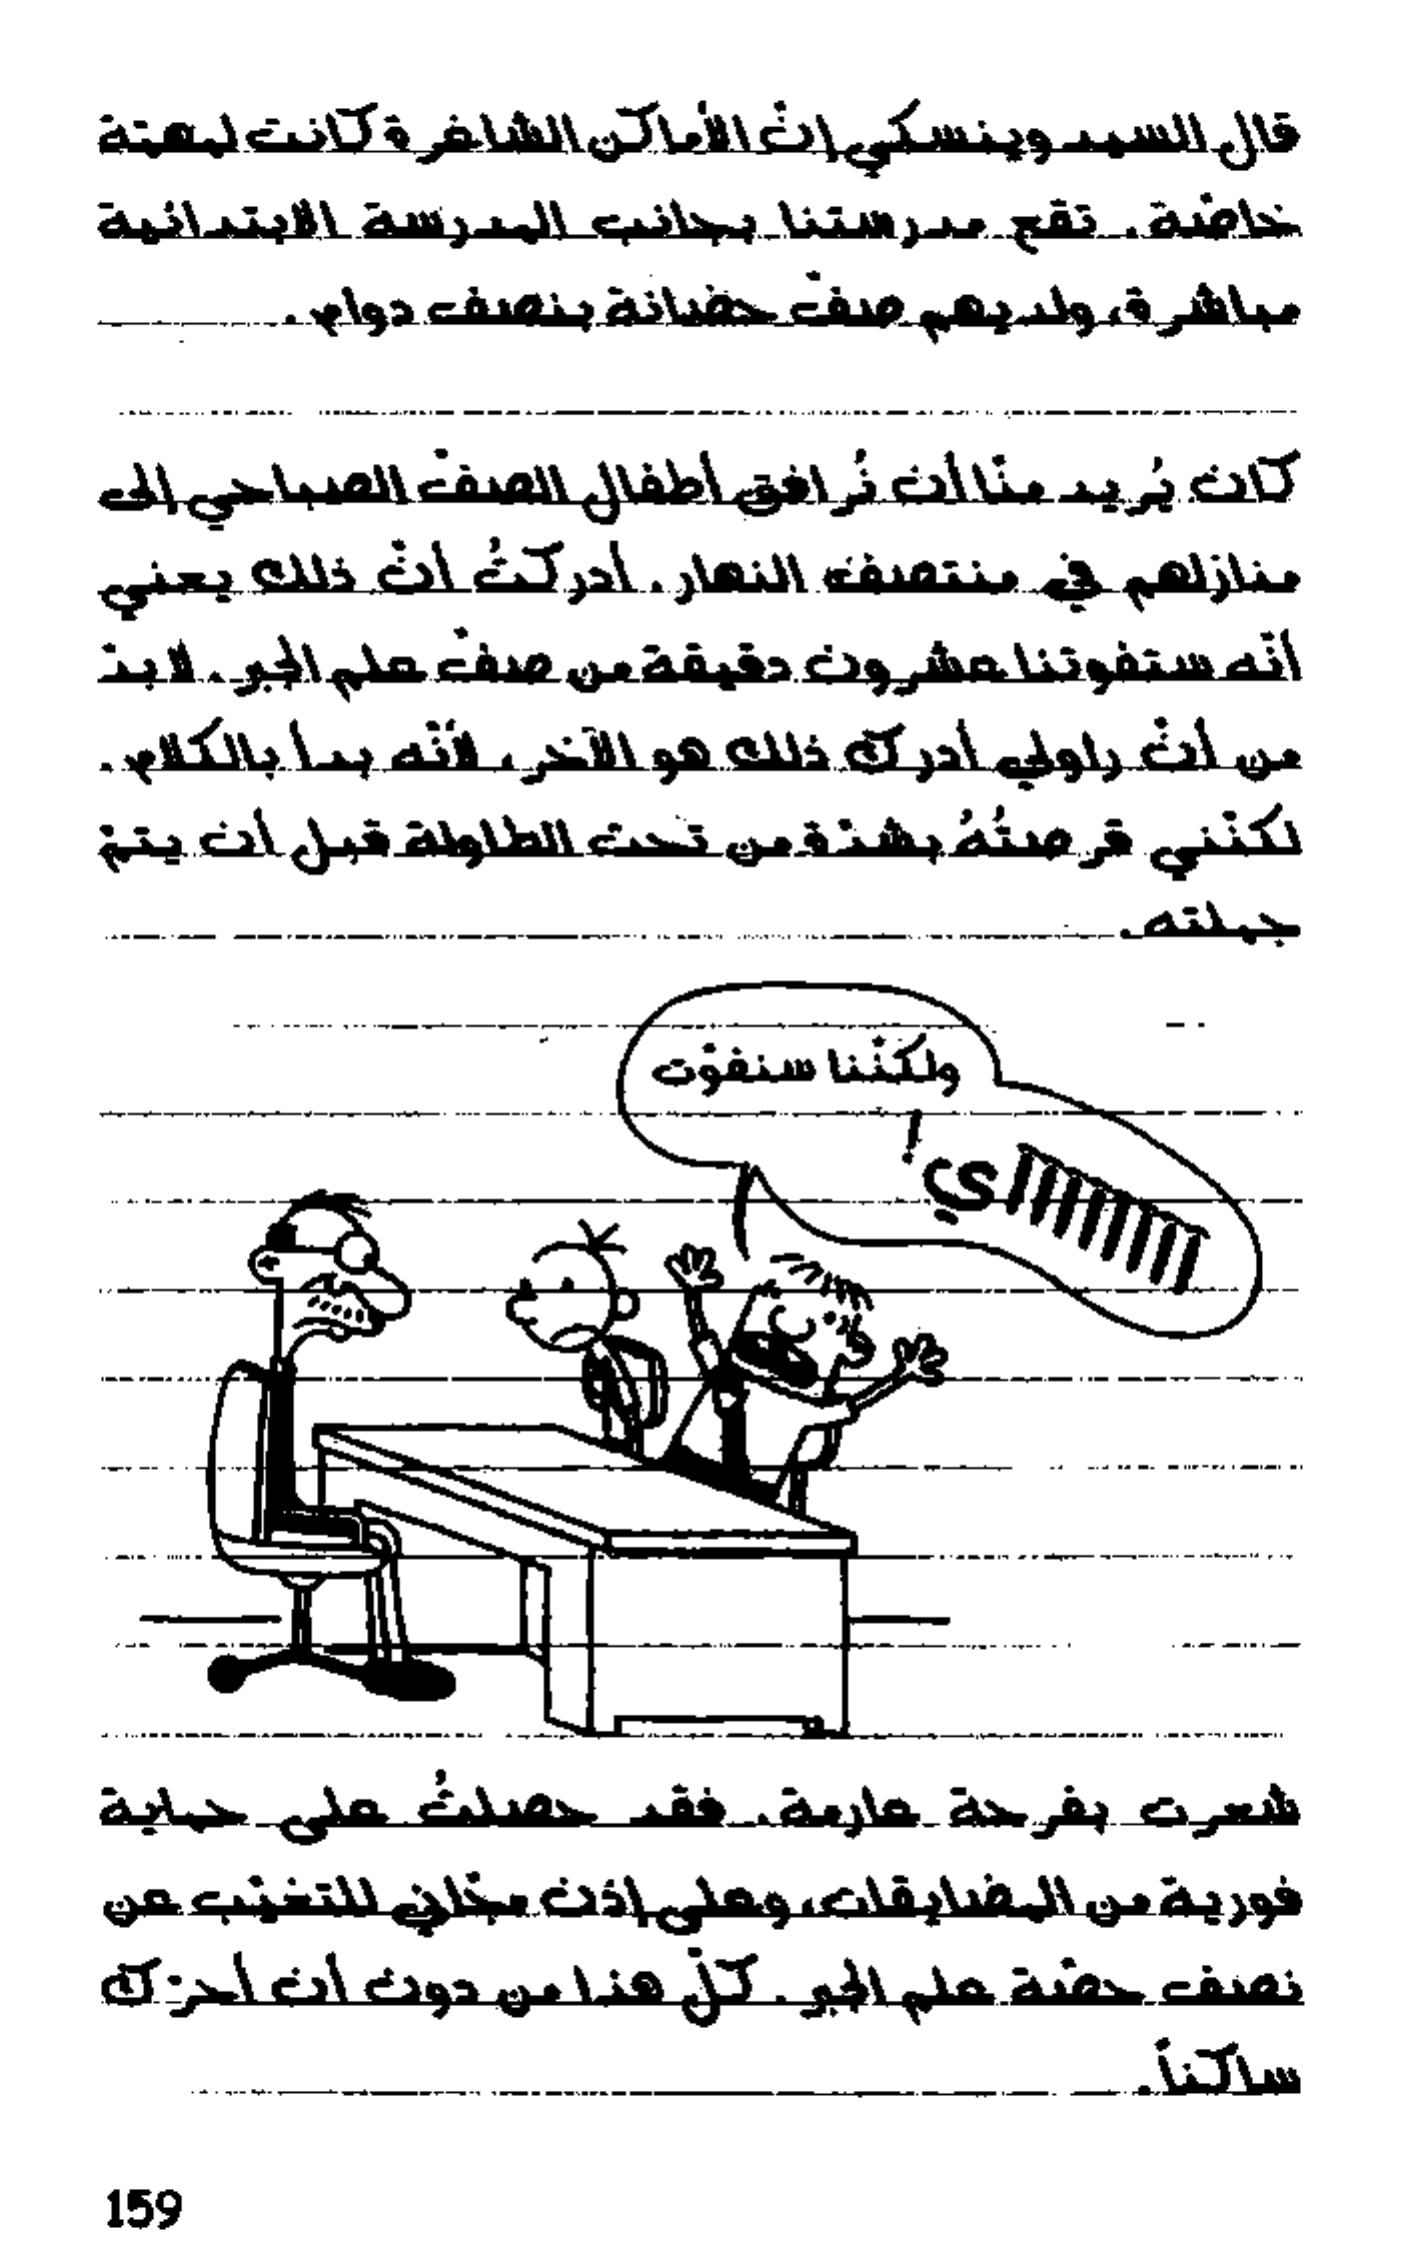 قال السيد وينسكي إنّ الأماكن الشاغرة كانت لمهمّة
خاصّة. تقع مدرستنا بجانب المدرسة الابتدائية
مباشرة، ولديهم صفّ حضانة بنصف دوام.
كان يُريد منّا أن نُرافق أطفال الصفّ الصباحي إلى
منازلهم في منتصف النهار. أدركتُ أنّ ذلك يعني
أنّه ستفوتنا عشرون دقيقة من صفّ علم الجبر. لا بدّ
من أنّ راولي أدرك ذلك هو الآخر، لأنّه بدأ بالكلام.
لكنّني قرصتُهُ بشدّة من تحت الطاولة قبل أن يتمّ
جملته.
ولكنّنا سنفوّت
اااااااااي!
شعرت بفرحة عارمة. فقد حصلتُ على حماية
فورية من المضايقات، وعلى إذن مجّاني للتغيّب عن
نصف حصّة علم الجبر. كلّ هذا من دون أن أحرّك
ساكناً.
159